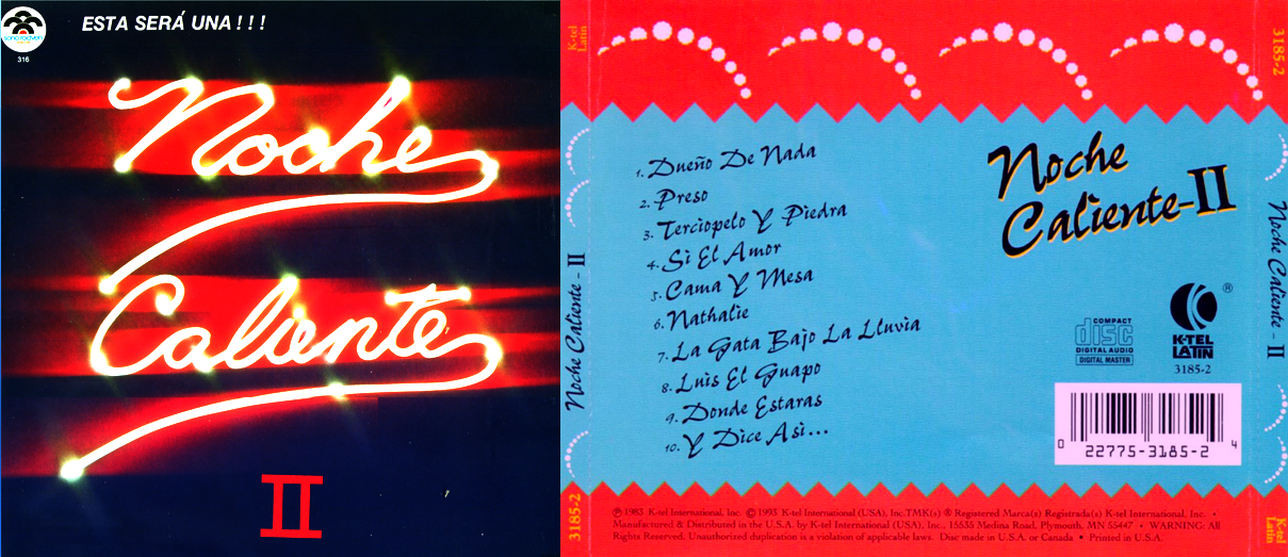 ESTA SERÁ UNA!!!
316
Noche
Caliente
II
K-tel
Latin
3185-2
1. Dueño De Nada
2. Preso
3. Terciopelo Y Piedra
4. Si El Amor
5. Cama Y Mesa
6. Nathalie
7. La Gata Bajo La Lluvia
8. Luis El Guapo
9. Donde Estaras
10. Y Dice Asi...
Noche
Caliente-II
COMPACT
disc
DIGITAL AUDIO
DIGITAL MASTER
®
K-TEL
LATIN
3185-2
0 22775-3185-2 4
Noche Caliente - II
Noche Caliente - II
3185-2
K-tel
Latin
℗ 1983 K-tel International, Inc. © 1993 K-tel International (USA), Inc. TMK(s) ® Registered Marca(s) Registrada(s) K-tel International, Inc. •
Manufactured & Distributed in the U.S.A. by K-tel International (USA), Inc., 15535 Medina Road, Plymouth, MN 55447 • WARNING: All
Rights Reserved. Unauthorized duplication is a violation of applicable laws. Disc made in U.S.A. or Canada • Printed in U.S.A.